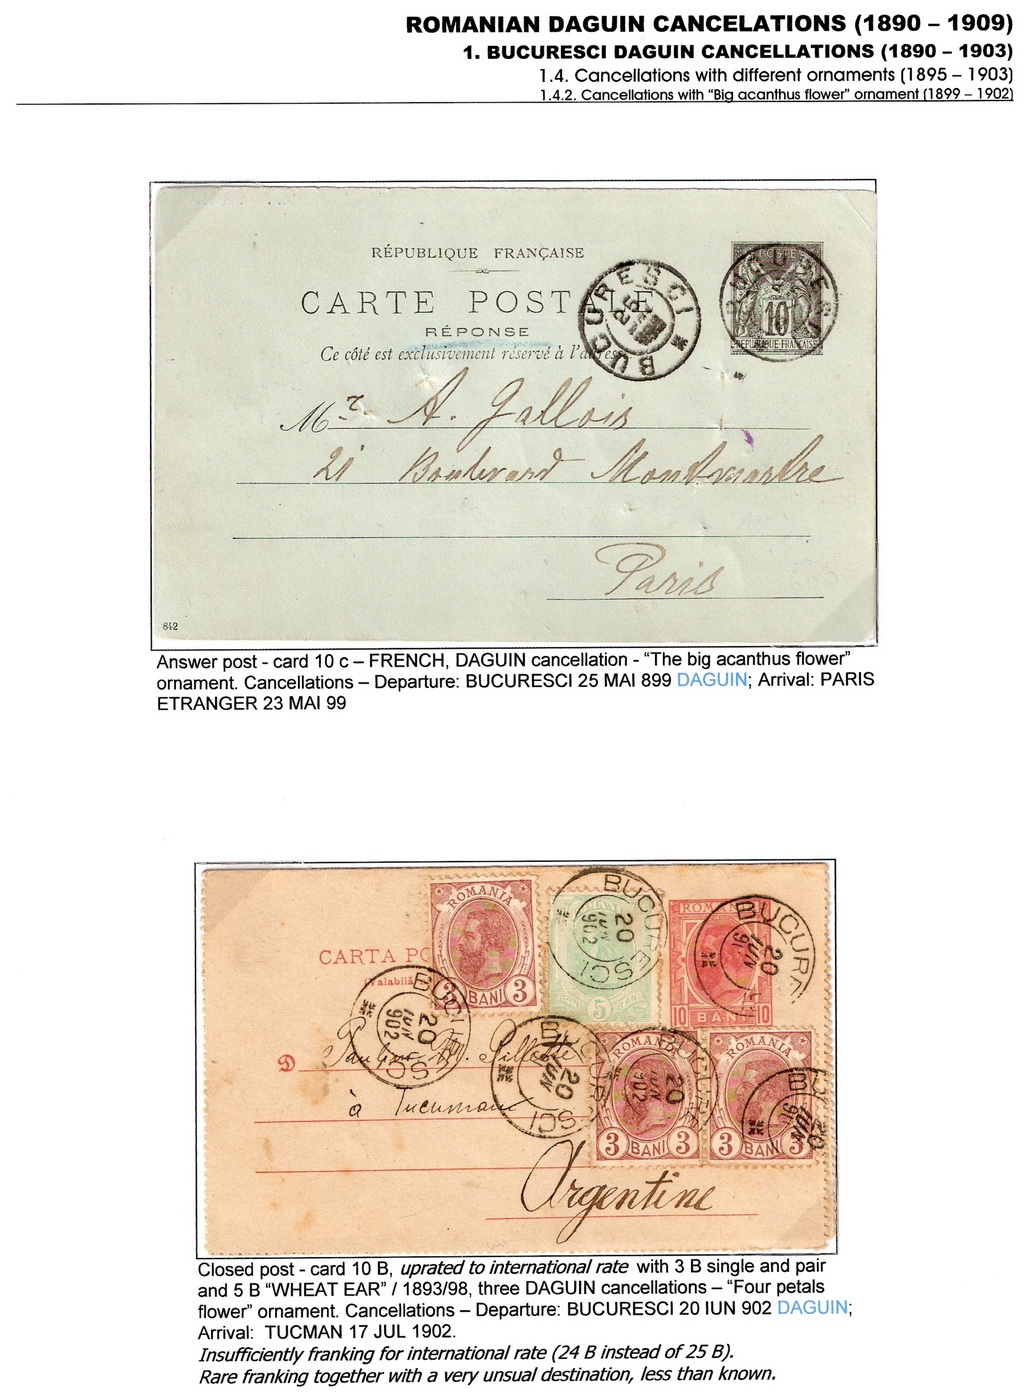 ROMANIAN DAGUIN CANCELATIONS (1890 – 1909)
1. BUCURESCI DAGUIN CANCELLATIONS (1890 – 1903)
1.4. Cancellations with different ornaments (1895 – 1903)
1.4.2. Cancellations with "Big acanthus flower" ornament (1899 – 1902)
RÉPUBLIQUE FRANÇAISE
CARTE POSTALE
RÉPONSE
Ce côté est exclusivement réservé à l'adresse
BUCURESCI
25
POSTES
10
REPUBLIQUE FRANÇAISE
Mr. A. Gallois
21 Boulevard Montmartre
Paris
842
Answer post - card 10 c – FRENCH, DAGUIN cancellation - "The big acanthus flower"
ornament. Cancellations – Departure: BUCURESCI 25 MAI 899 DAGUIN; Arrival: PARIS
ETRANGER 23 MAI 99
ROMANIA
3 BANI 3
BUCURESCI
20
IUN
902
BANI 5 BANI
ROM
BUCURE
20
IUN
10 BANI 10
CARTA PO
(Valabilă
BUCU
20
IUN
902
D
à Tucuman
BUCURESCI
20
IUN
ROMANIA
3 BANI 3
BUCURE
20
IUN
902
ROMANIA
3 BANI 3
BU
20
IUN
Argentine
Closed post - card 10 B, uprated to international rate with 3 B single and pair
and 5 B "WHEAT EAR" / 1893/98, three DAGUIN cancellations – "Four petals
flower" ornament. Cancellations – Departure: BUCURESCI 20 IUN 902 DAGUIN;
Arrival: TUCMAN 17 JUL 1902.
Insufficiently franking for international rate (24 B instead of 25 B).
Rare franking together with a very unsual destination, less than known.